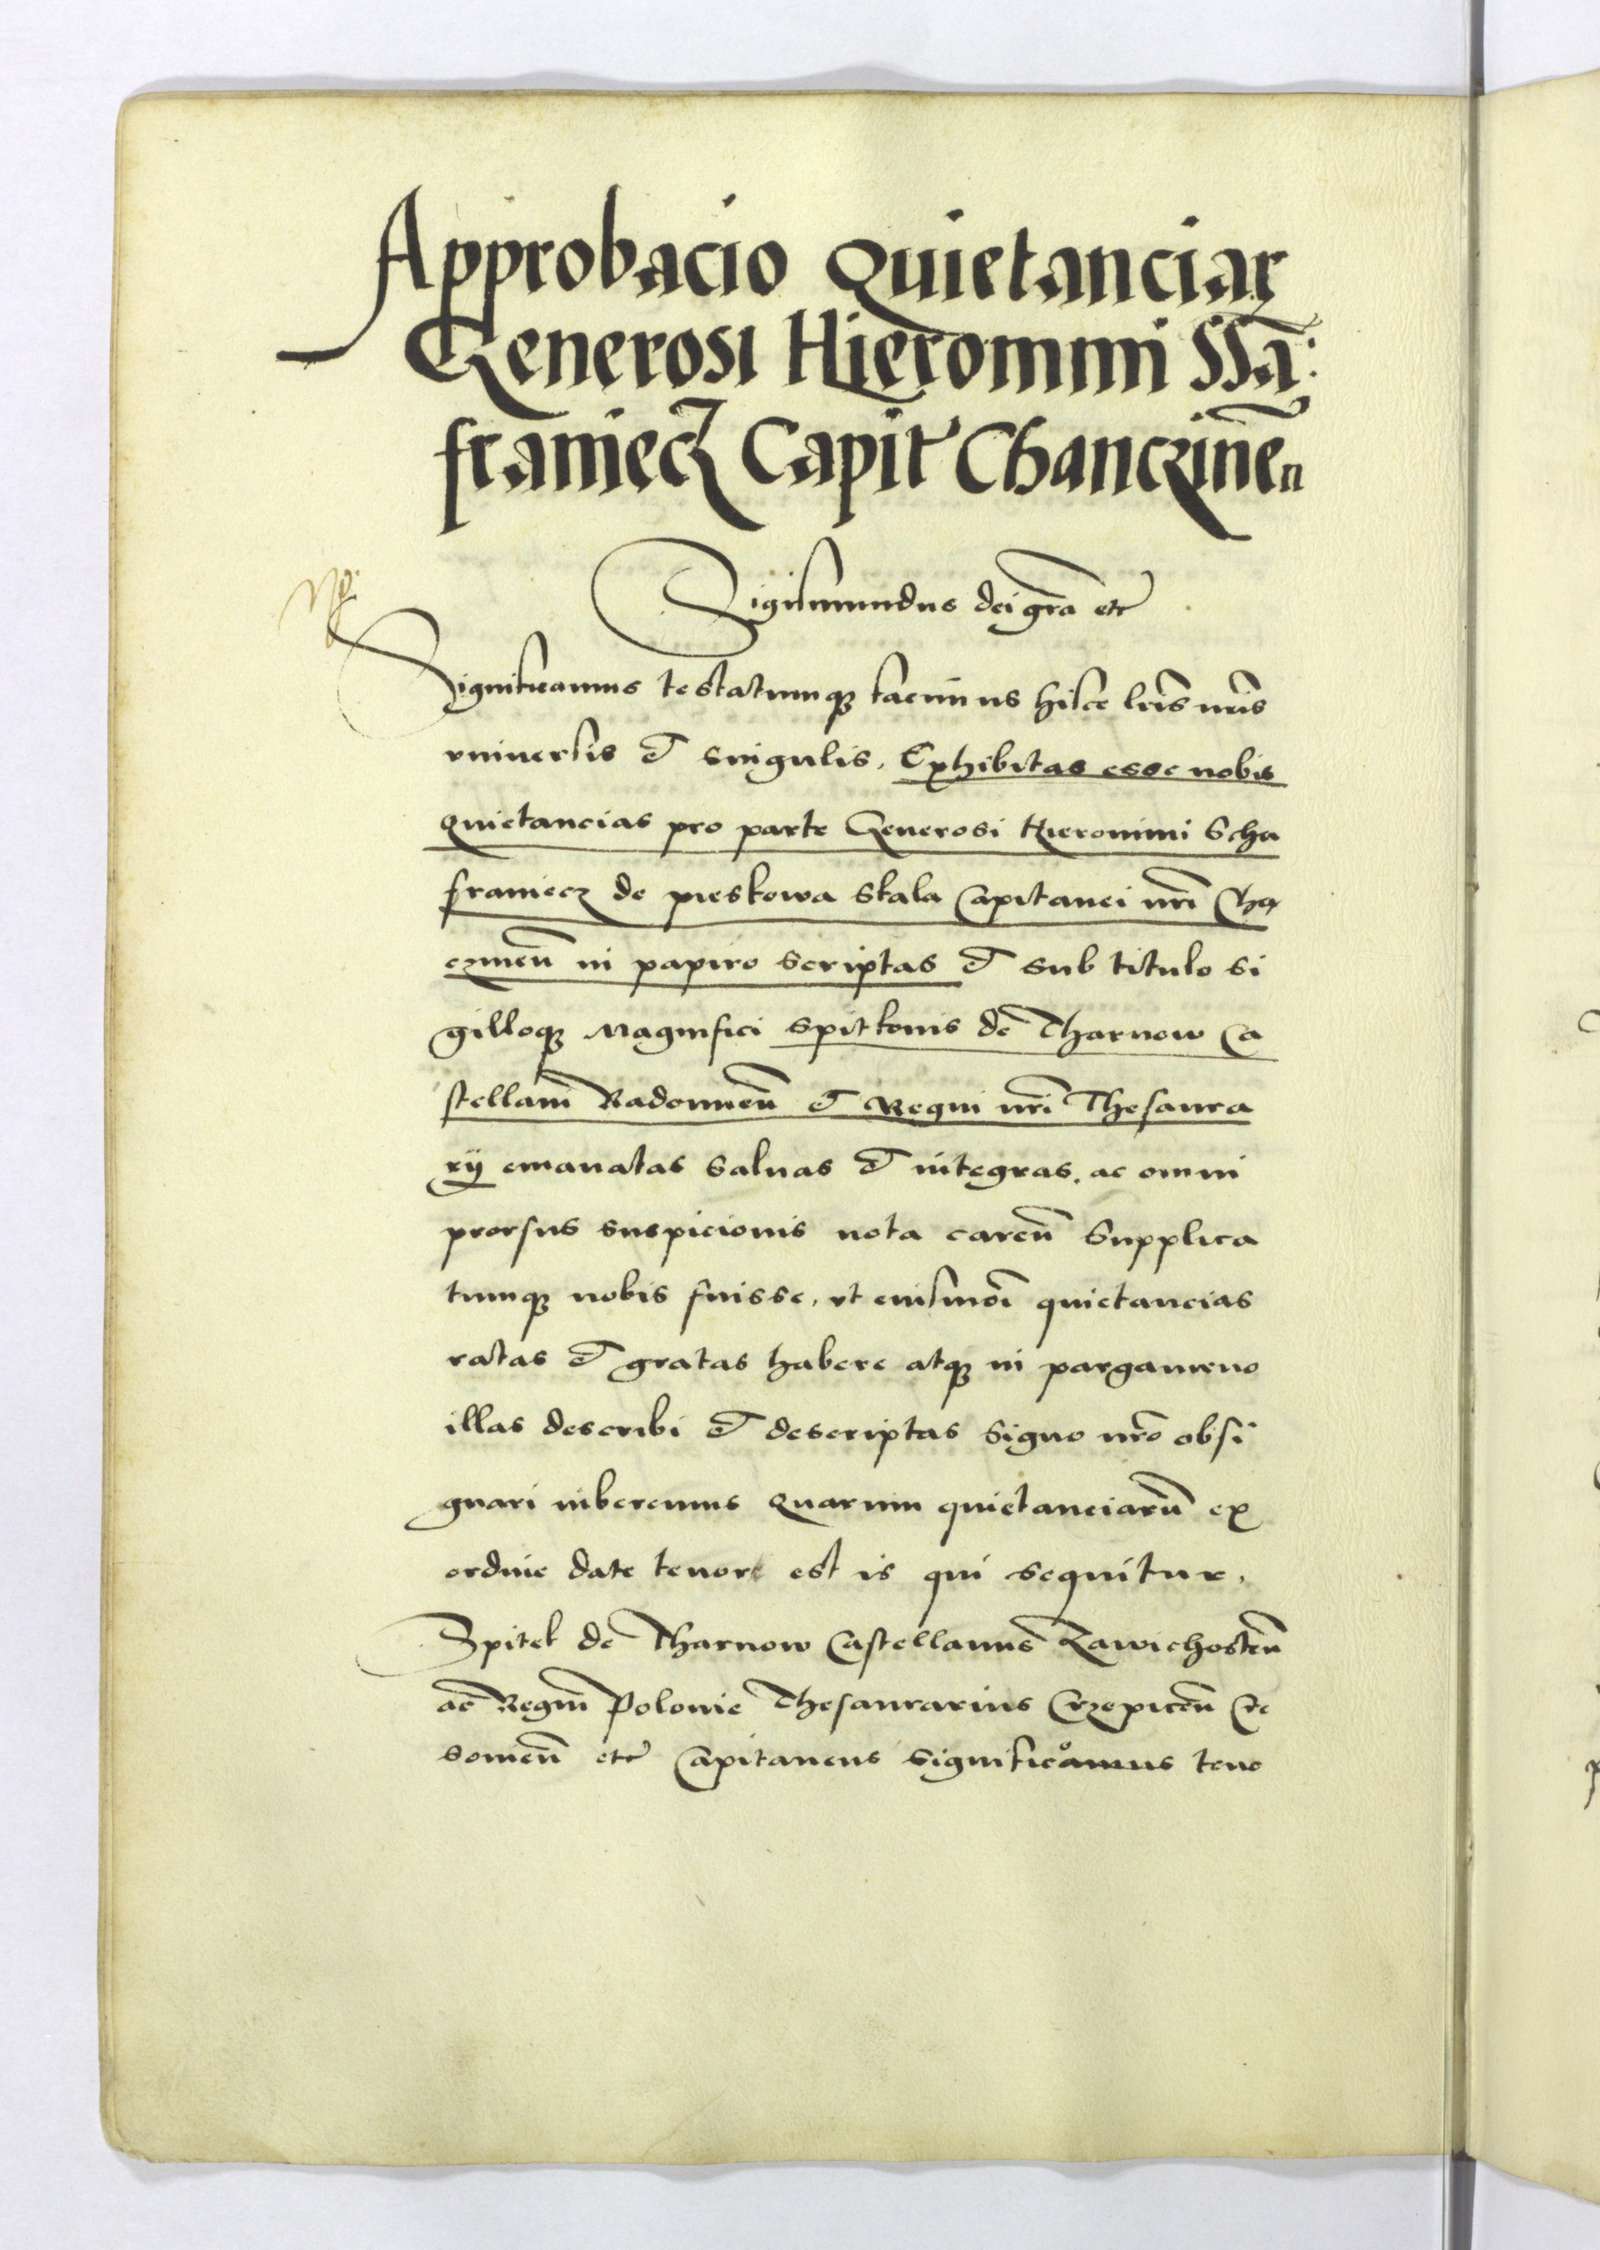 Approbacio Quietanciarꝝ
Generosi Hieronimi Sſa:
franiecz Capit Chanczinen̄
Sigismundus dei gr̄a etc̄
Significamus testatumqꝫ facimus hisce l̄ris nr̄is
vniuersis et singulis. Exhibitas esse nobis
quietancias pro parte Generosi Hieronimi Scha
franiecz de pieskowa skala Capitanei nr̄i Chą
czinen̄ in papiro scriptas et sub titulo si
gilloqꝫ Magnifici Spitkonis de Tharnow Ca
stellani Radomien̄ et Regni nr̄i Thesaura
rij emanatas saluas et integras. ac omni
prorsus suspicionis nota caren̄ Supplica
tumqꝫ nobis fuisse, vt euismōi quietancias
ratas et gratas habere atqꝫ in pargameno
illas describi et descriptas signo nr̄o obsi
gnari iuberemus Quarum quietanciarū ex
ordine date tenor est is qui sequitur.
Spitek de Tharnow Castellanus Zawichosten̄
ac Regni Polonie Thesaurarius Crzepicen̄ Cre
sowien̄ etc̄ Capitaneus significamus teno